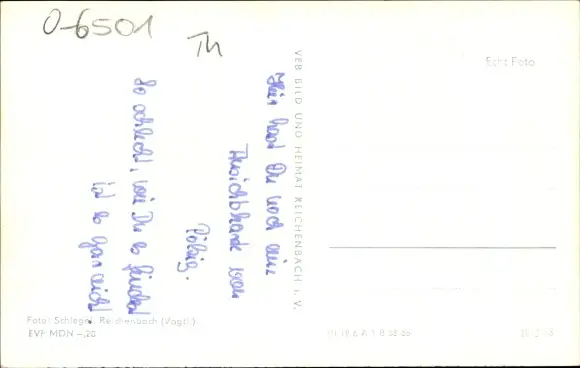 0-6501
Th
Echt Foto
VEB BILD UND HEIMAT REICHENBACH i. V.
Hier hast Du noch eine
Ansichtskarte von
So schlecht, wie Du es findest
ist es gar nicht
Foto: Schlegel, Reichenbach (Vogtl.)
EVP MDN -,20